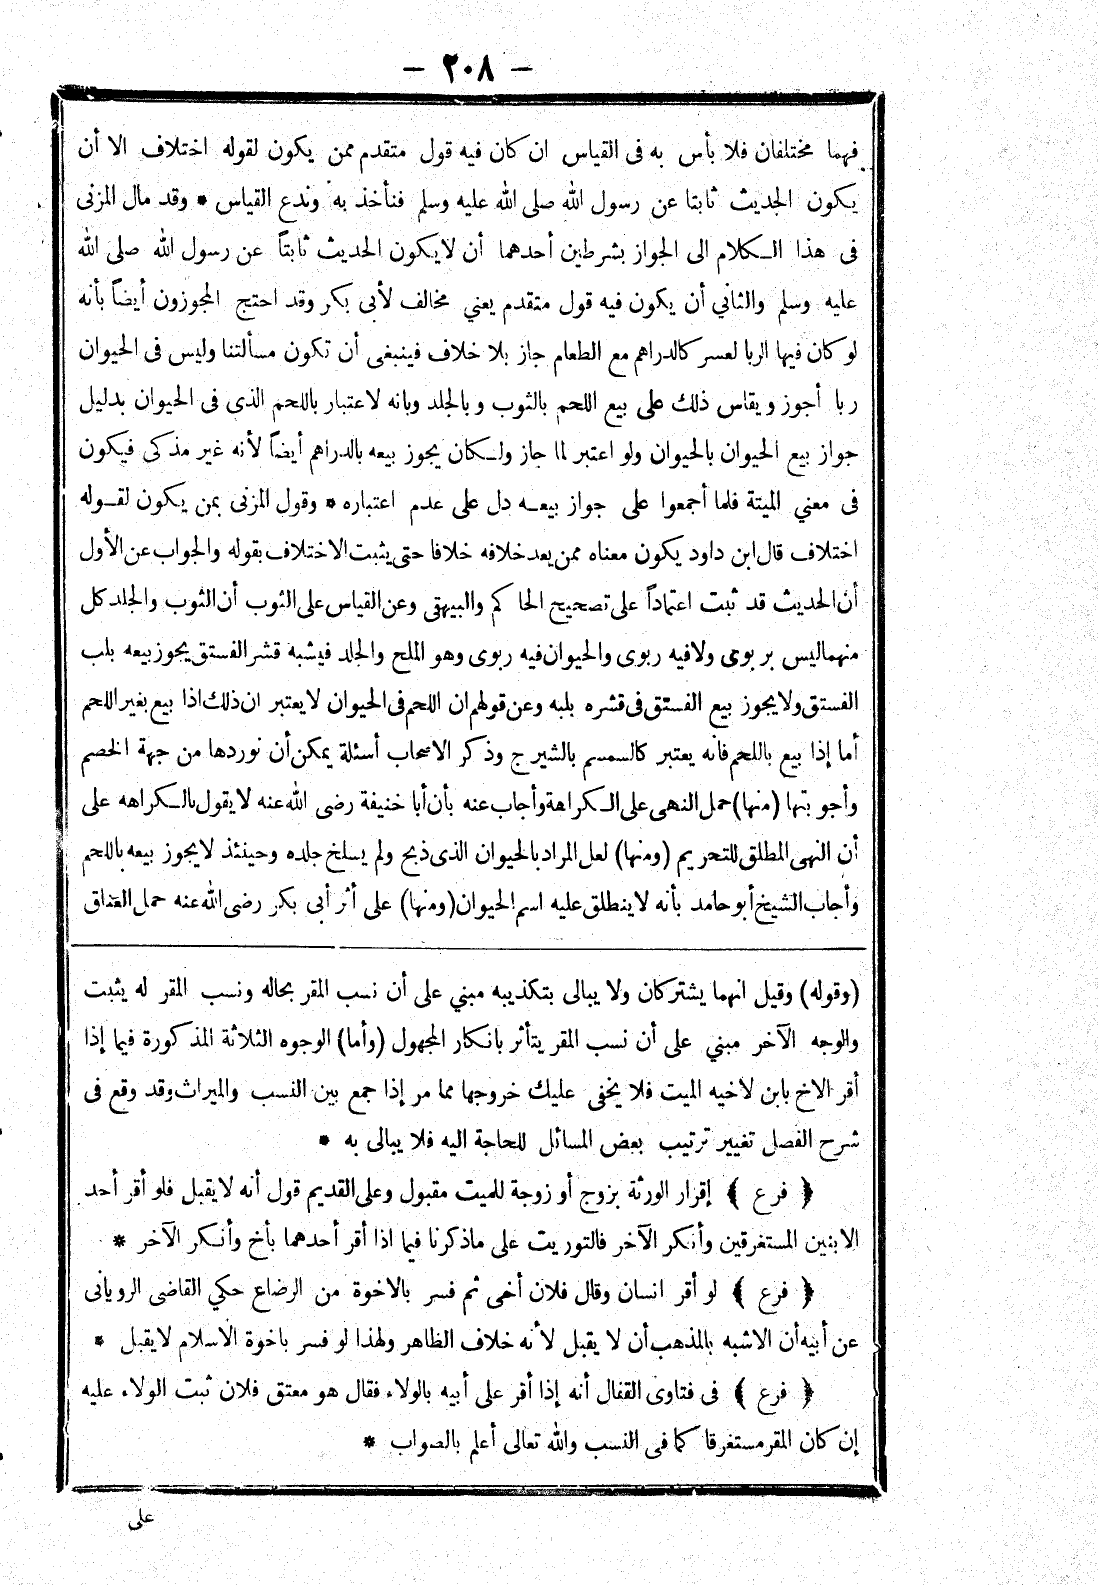 – ٢٠٨ –
فهما مختلفان فلا بأس به فى القياس ان كان فيه قول متقدم ممن يكون لقوله اختلاف الا أن
يكون الحديث ثابتا عن رسول الله صلى الله عليه وسلم فنأخذ به وندع القياس * وقد مال المزنى
فى هذا الكلام الى الجواز بشرطين أحدهما أن لا يكون الحديث ثابتاً عن رسول الله صلى الله
عليه وسلم والثاني أن يكون فيه قول متقدم يعني مخالف لأبى بكر وقد احتج المجوزون أيضاً بأنه
لو كان فيها الربا لعسر كالدراهم مع الطعام جاز بلا خلاف فينبغى أن تكون مسألتنا وليس فى الحيوان
ربا أجوز ويقاس ذلك على بيع اللحم بالثوب وبالجلد وبانه لا عتبار باللحم الذى فى الحيوان بدليل
جواز بيع الحيوان بالحيوان ولو اعتبر لما جاز ولكان يجوز بيعه بالدراهم أيضاً لأنه غير مذكى فيكون
فى معني الميتة فلما أجمعوا على جواز بيعه دل على عدم اعتباره * وقول المزنى بمن يكون لقوله
اختلاف قال ابن داود يكون معناه ممن يعد خلافه خلافا حتى يثبت الاختلاف بقوله والجواب عن الأول
أن الحديث قد ثبت اعتماداً على تصحيح الحاكم والبيهقى وعن القياس على الثوب أن الثوب والجلد كل
منهما ليس بربوى ولا فيه ربوى والحيوان فيه ربوى وهو الملح والجلد فيشبه قشر الفستق يجوز بيعه بلب
الفستق ولا يجوز بيع الفستق فى قشره بلبه وعن قولهم ان اللحم فى الحيوان لا يعتبر ان ذلك اذا بيع بغير اللحم
أما إذا بيع باللحم فانه يعتبر كالسمسم بالشيرج وذكر الاصحاب أسئلة يمكن أن نوردها من جهة الخصم
وأجوبتها (منها) حمل النهى على الكراهة وأجاب عنه بأن أبا خنيفة رضى الله عنه لا يقول بالكراهه على
أن النهى المطلق للتحريم (ومنها) لعل المراد بالحيوان الذى ذبح ولم يسلخ جلده وحينئذ لا يجوز بيعه باللحم
وأجاب الشيخ أبو حامد بأنه لا ينطلق عليه اسم الحيوان (ومنها) على أثر أبى بكر رضى الله عنه حمل العناق
(وقوله) وقيل انهما يشتركان ولا يبالى بتكذيبه مبني على أن نسب المقر بحاله ونسب المقر له يثبت
والوجه الآخر مبني على أن نسب المقر يتأثر بانكار المجهول (وأما) الوجوه الثلاثة المذكورة فيما إذا
أقر الاخ بابن لاخيه الميت فلا يخفى عليك خروجها مما مر إذا جمع بين النسب والميراث وقد وقع فى
شرح الفصل تغيير ترتيب بعض المسائل للحاجة اليه فلا يبالى به *
﴿ فرع ﴾ إقرار الورثة بزوج أو زوجة للميت مقبول وعلى القديم قول أنه لا يقبل فلو أقر أحد
الابنين المستغرقين وأنكر الآخر فالتوريت على ماذكرنا فيما اذا أقر أحدهما بأخ وأنكر الآخر *
﴿ فرع ﴾ لو أقر انسان وقال فلان أخى ثم فسر بالاخوة من الرضاع حكي القاضى الرويانى
عن أبيه أن الاشبه بالمذهب أن لا يقبل لأنه خلاف الظاهر ولهذا لو فسر باخوة الاسلام لا يقبل *
﴿ فرع ﴾ فى فتاوى القفال أنه إذا أقر على أبيه بالولاء فقال هو معتق فلان ثبت الولاء عليه
إن كان المقر مستغرقا كما فى النسب والله تعالى أعلم بالصواب *
على